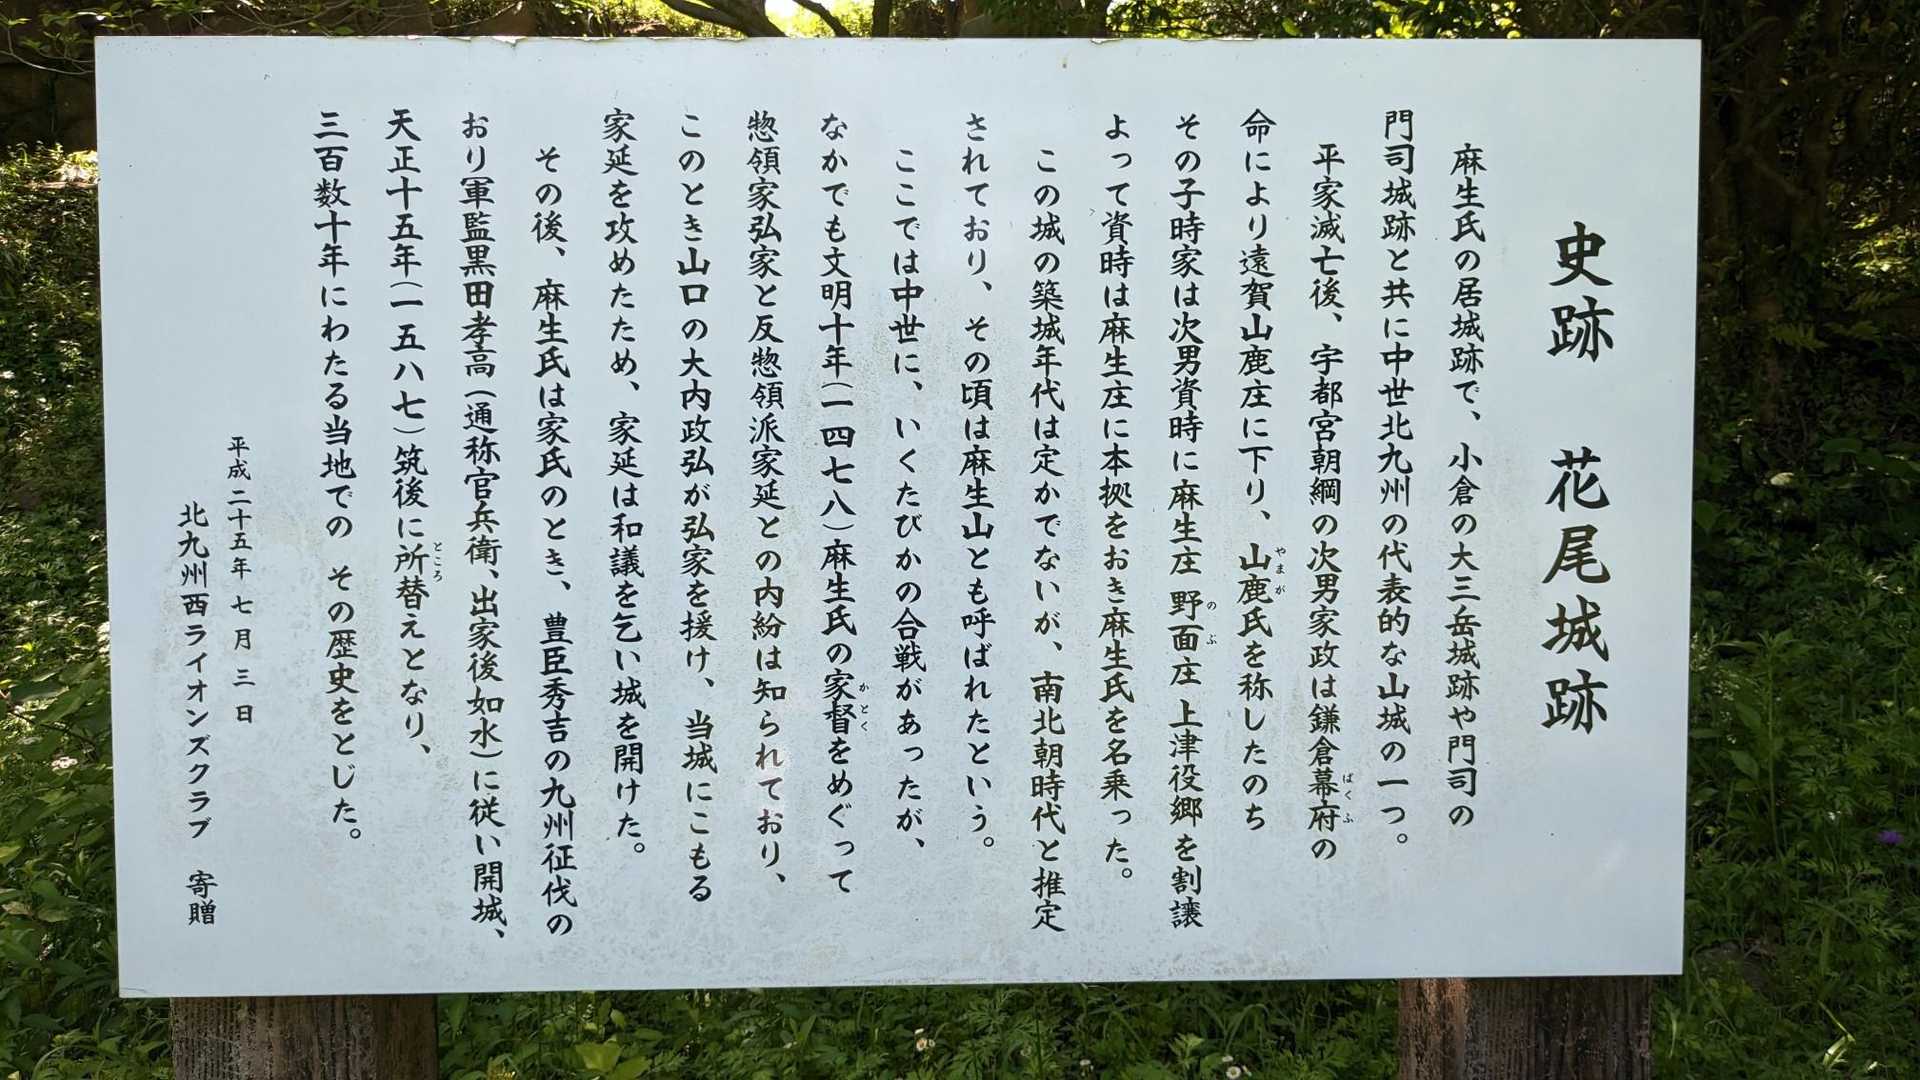 史跡 花尾城跡
麻生氏の居城跡で、小倉の大三岳城跡や門司の
門司城跡と共に中世北九州の代表的な山城の一つ。
平家滅亡後、宇都宮朝綱の次男家政は鎌倉幕府の
ばくふ
命により遠賀山鹿庄に下り、山鹿氏を称したのち
やまが
その子時家は次男資時に麻生庄 野面庄 上津役郷を割譲
のぶ
よって資時は麻生庄に本拠をおき麻生氏を名乗った。
この城の築城年代は定かでないが、南北朝時代と推定
されており、その頃は麻生山とも呼ばれたという。
ここでは中世に、いくたびかの合戦があったが、
なかでも文明十年(一四七八)麻生氏の家督をめぐって
かとく
惣領家弘家と反惣領派家延との内紛は知られており、
このとき山口の大内政弘が弘家を援け、当城にこもる
家延を攻めたため、家延は和議を乞い城を開けた。
その後、麻生氏は家氏のとき、豊臣秀吉の九州征伐の
おり軍監黒田孝高(通称官兵衛、出家後如水)に従い開城、
天正十五年(一五八七)筑後に所替えとなり、
ところ
三百数十年にわたる当地での その歴史をとじた。
平成二十五年七月三日
北九州西ライオンズクラブ 寄贈